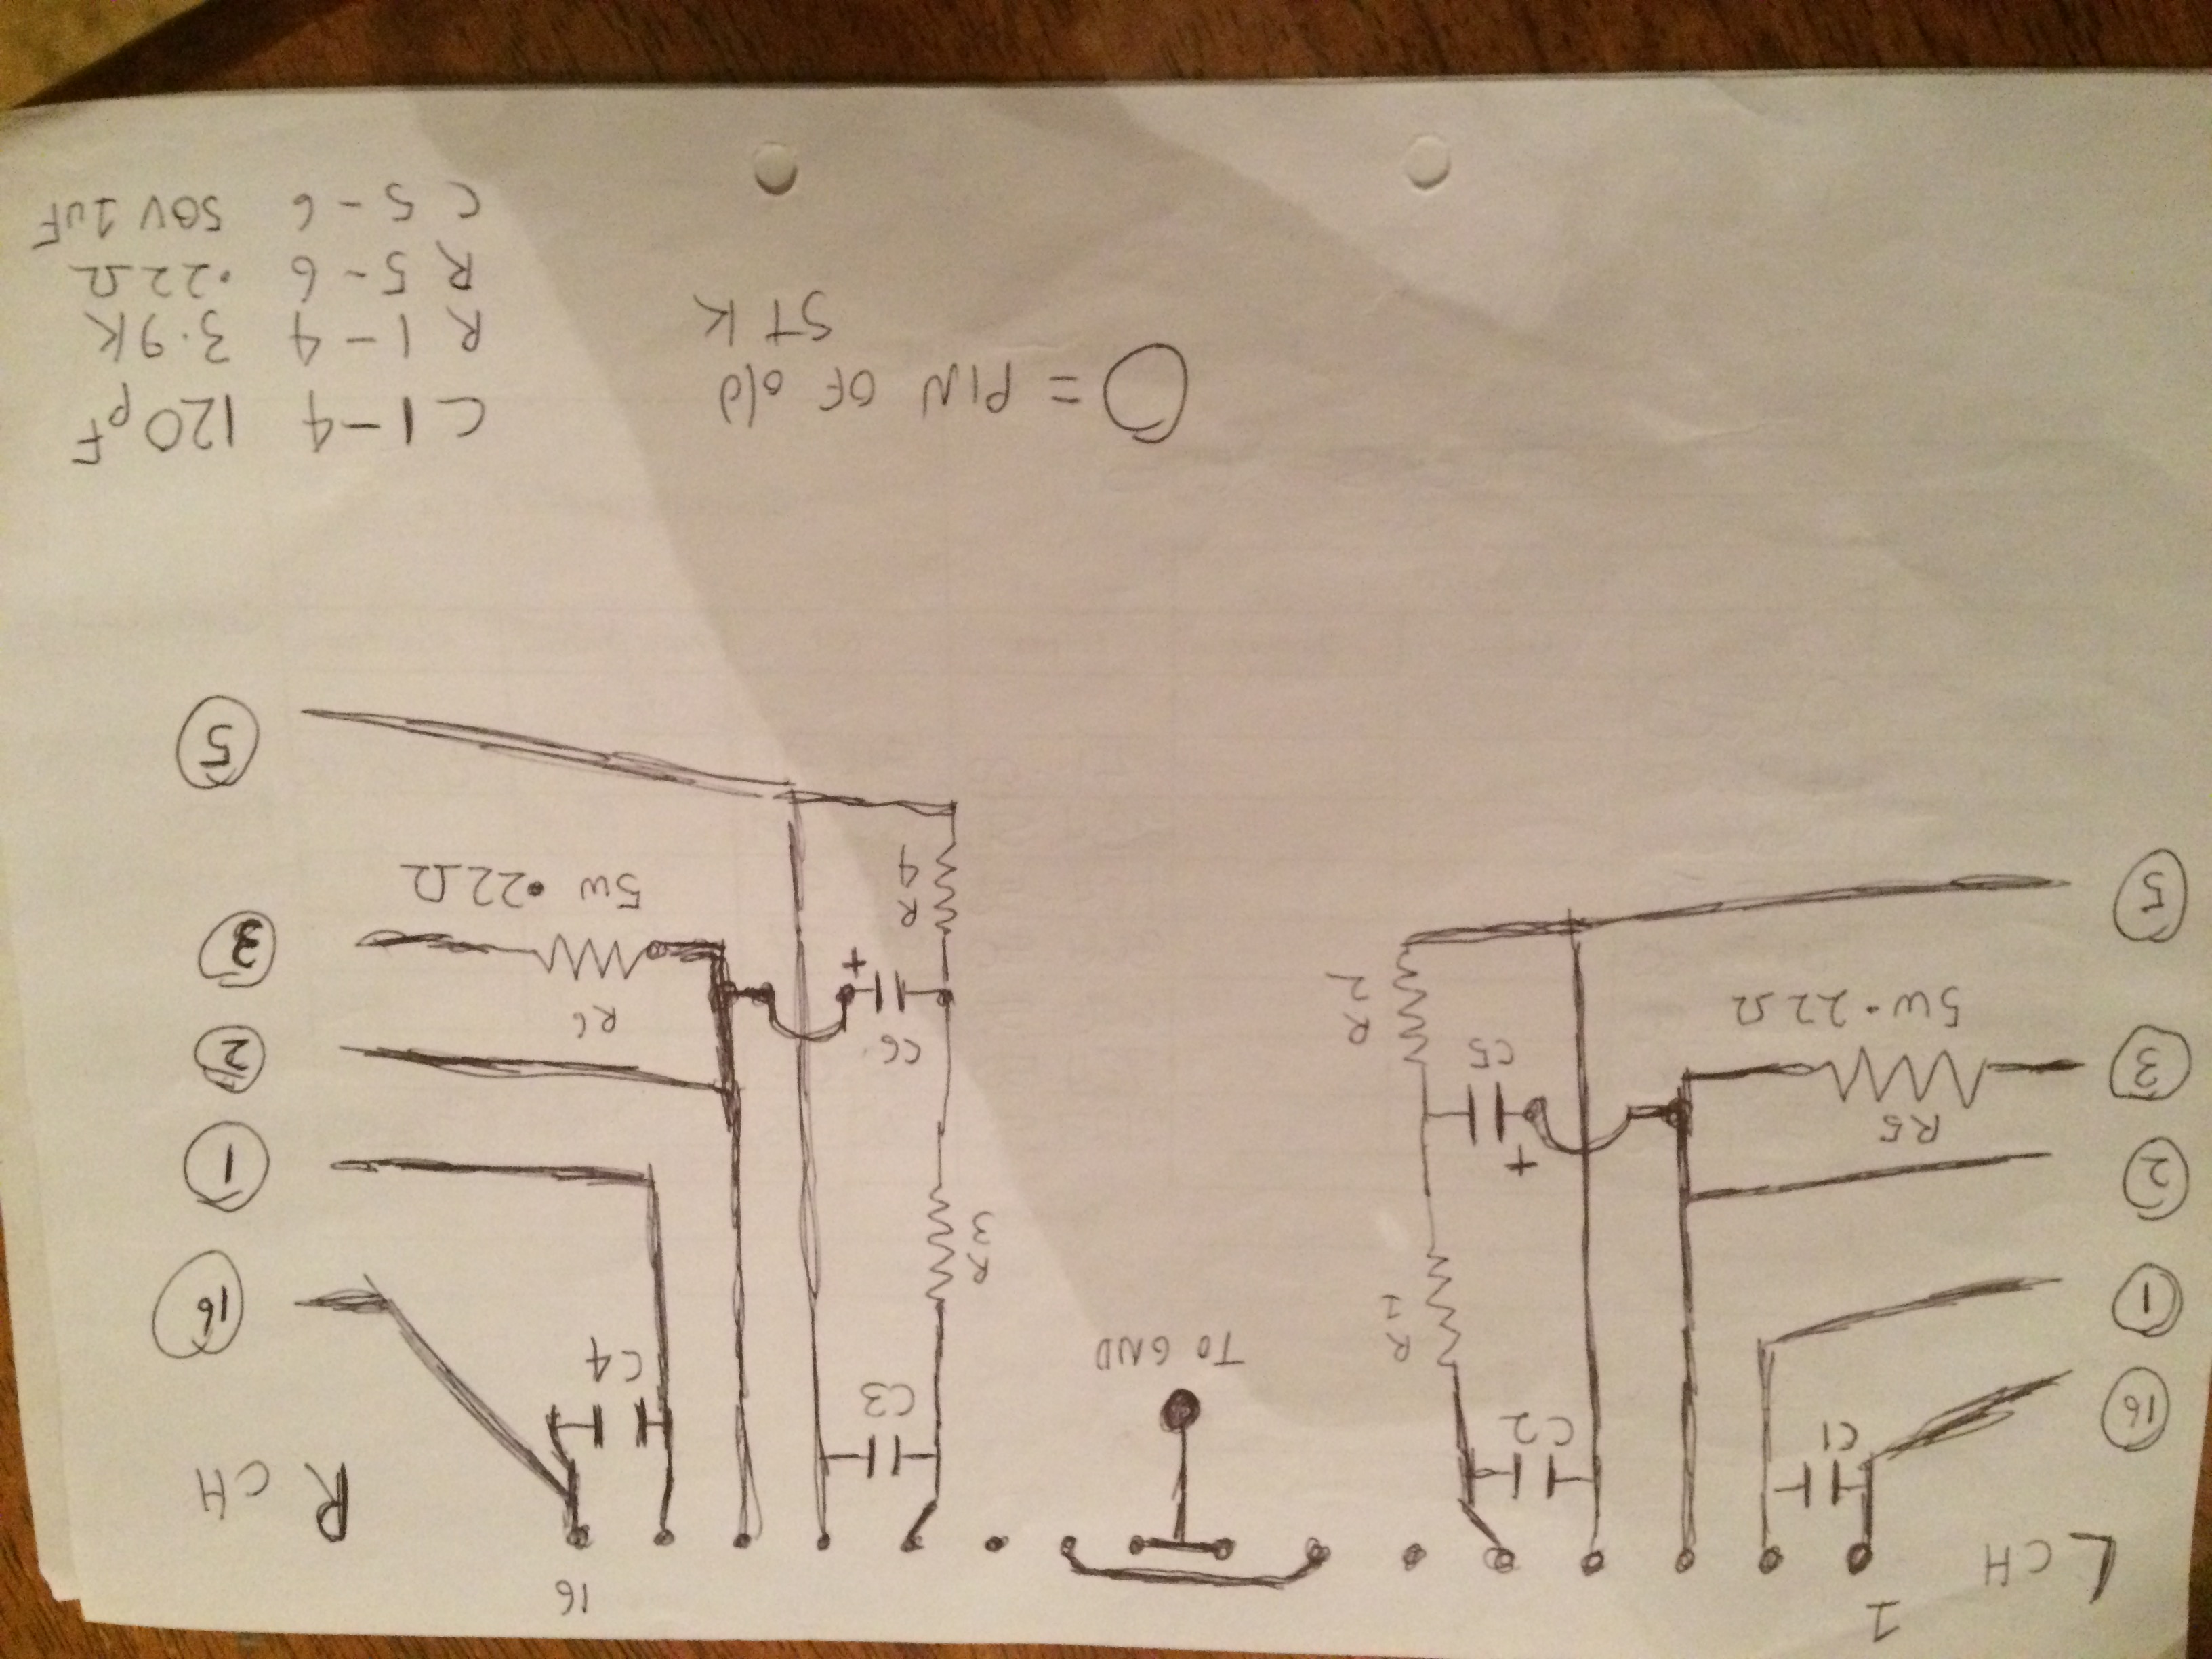 1
16
L CH
R CH
C1
C2
C3
C4
16
16
TO GND
R1
R3
1
1
2
2
R5
5W .22Ω
3
C5
+
C6
+
R6
5W .22Ω
3
R2
R4
5
5
= PIN OF Old
STK
C 1-4 120pF
R 1-4 3.9K
R 5-6 .22Ω
C 5-6 50V 1uF